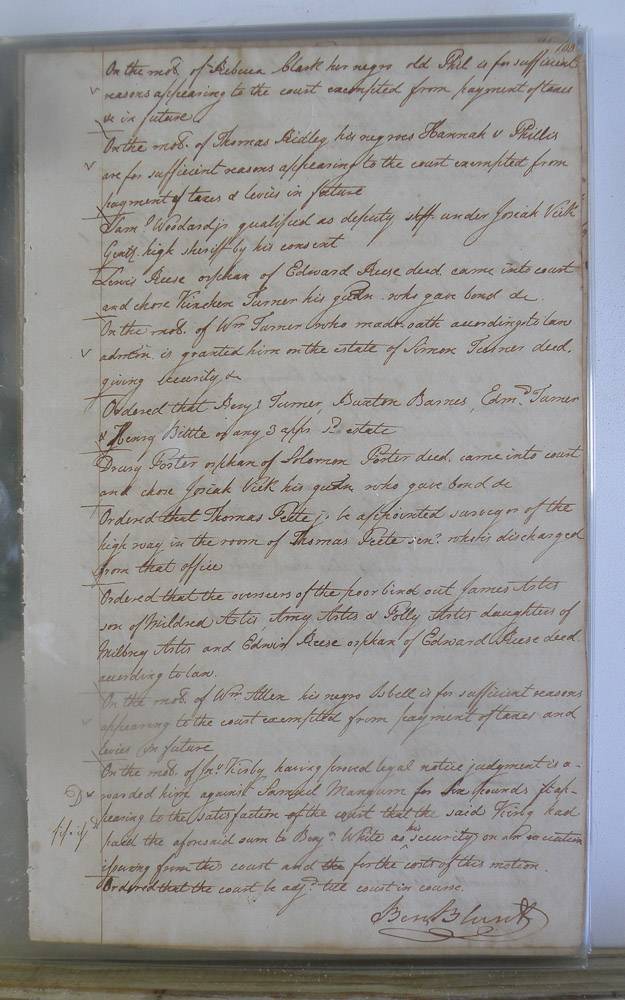 On the mo. of Rebecca Clark her negro old Phil is for sufficient
reasons appearing to the court exempted from payment of taxes
&c in future
On the mo. of Thomas Ridley his negroes Hannah & Phillis
are for sufficient reasons appearing to the court exempted from
payment of taxes & levies in future
Sam.l Woodard jr qualified as deputy shff. under Josiah Vick
Gentl. high sheriff by his consent
Lewis Reese orphan of Edward Reese decd. came into court
and chose Kinchen Turner his guDn. who gave bond &c.
On the mo. of Wm Turner who made oath according to law
admtn. is granted him on the estate of Simon Turner decd.
giving security, &c
Ordered that Benj.n Turner, Buxton Barnes, Edm.d Turner
& Henry Bittle or any 3 appr. sd. estate
Drury Porter orphan of Solomon Porter decd. came into court
and chose Josiah Vick his guDn. who gave bond &c
Ordered that Thomas Peete jr. be appointed surveyor of the
high way in the room of Thomas Peete senr. who is discharged
from that office
Ordered that the overseers of the poor bind out James Artis
son of Mildred Artis Amy Artis & Polly Artis daughters of
Milbrey Artis and Edwin Reese orphan of Edward Reese decd.
according to law.
On the mo. of Wm. Allen his negro Isbell is for sufficient reasons
appearing to the court exempted from payment of taxes and
levies in future
On the mo. of Jno. Kirby having proved legal notice judgment is a-
warded him against Samuel Mangum for Six pounds it ap-
pearing to the satisfaction of the court that the said Kirby had
paid the aforesaid sum to Benj.n White as his security on an execution
issuing from this court and for the costs of this motion.
Ordered that the court be adj.d till court in course.
Ben Blunt